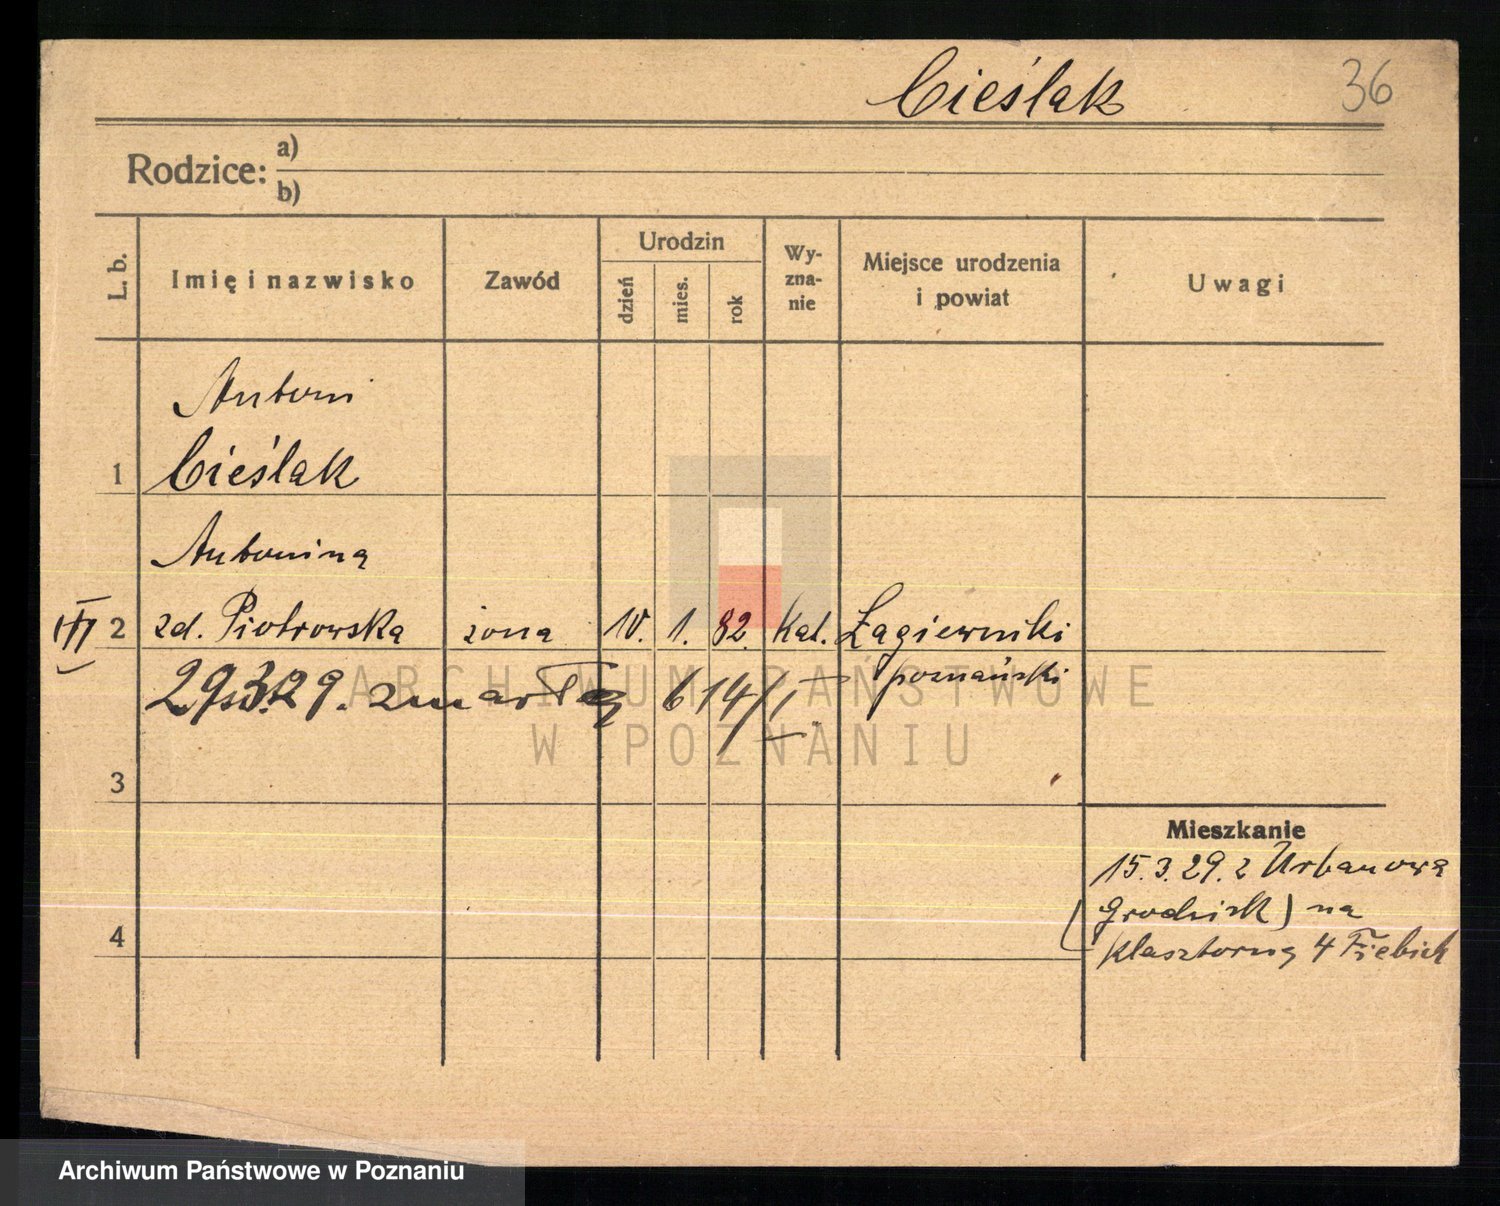 Cieślak
36
Rodzice: a)
b)
L. b.
Imię i nazwisko
Zawód
Urodzin
dzień
mies.
rok
Wy-
zna-
nie
Miejsce urodzenia
i powiat
Uwagi
Antoni
1 Cieślak
Antonina
2 zd. Piotrowska żona 10. 1. 82. Kat. Łagiewniki
poznański
29.3.29. zmarła 614/I
3
Mieszkanie
15.3.29. z Urbanowa
(Grodzisk) na
Klasztorną 4 Fiebich
4
ARCHIWUM PAŃSTWOWE
W POZNANIU
Archiwum Państwowe w Poznaniu